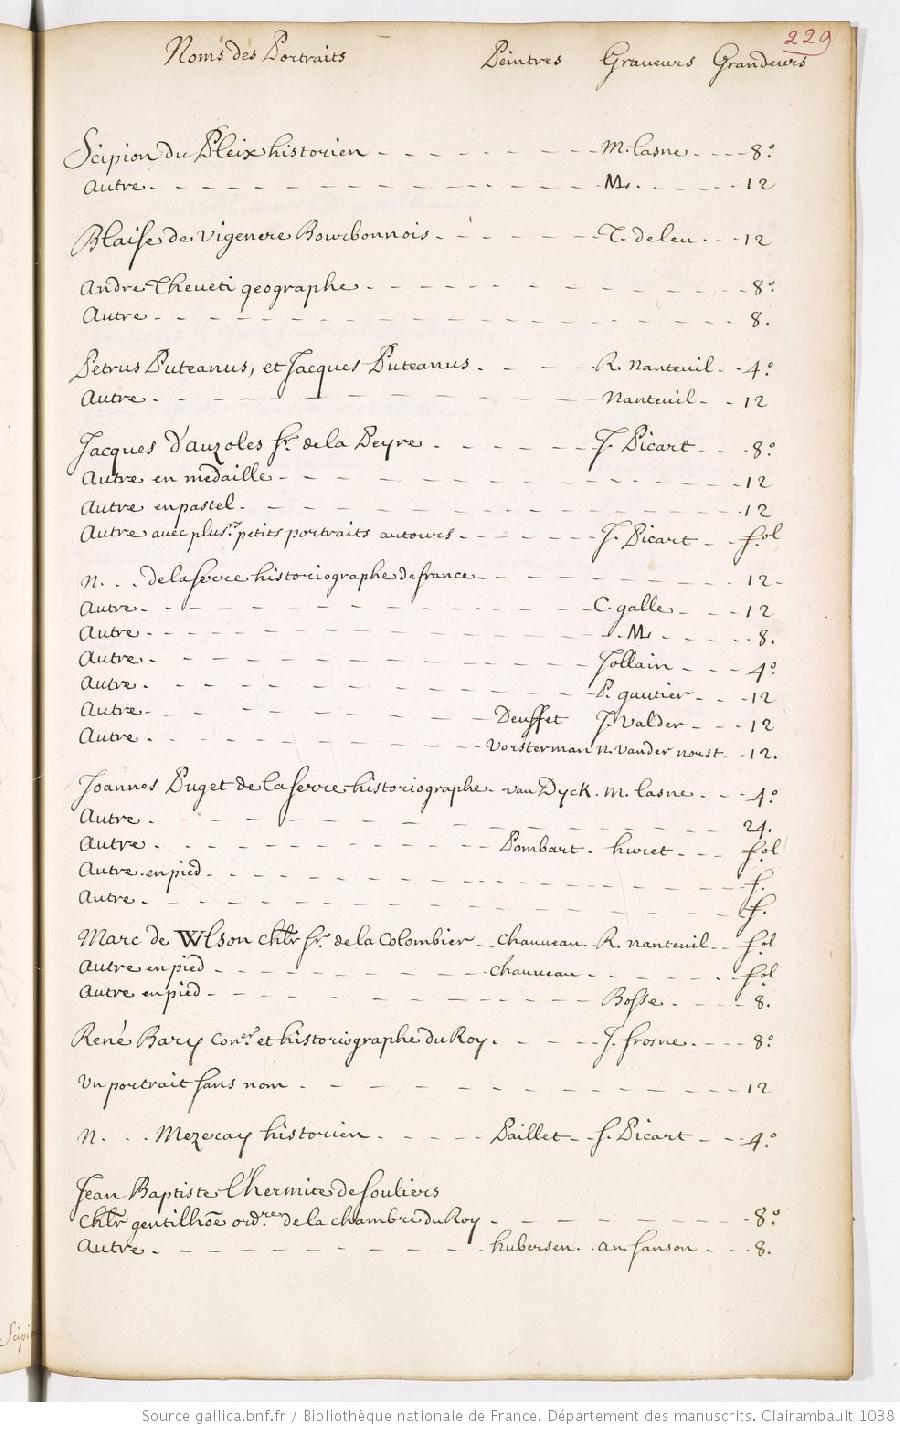 229
Noms des Portraits Peintres Graveurs Grandeurs
Scipion du Pleix historien - - - - - - - - M. lasne - - - 8.°
Autre - - - - - - - - - - - - M. - - - - - 12
Blaise de Vigenere Bourbonnois - - - - - - T. de leu - - - 12
Andre Theveti geographe - - - - - - - - - - - - 8.°
Autre - - - - - - - - - - - - - - - - 8.
Petrus Puteanus, et Jacques Puteanus - - - - R. Nanteuil - 4.°
Autre - - - - - - - - - - - Nanteuil - - 12
Jacques D'auzoles Sr. de la Peyre - - - - - J. Picart - - - 8.°
Autre en medaille - - - - - - - - - - - - - - 12
Autre en pastel - - - - - - - - - - - - - - - 12
Autre avec plusrs. petits portraits autours - - - - - J. Picart - - fol
N. . . de la serre historiographe de france - - - - - - - - 12 -
Autre - - - - - - - - - - - C. galle - - - 12
Autre - - - - - - - - - - - - M. - - - - 8.
Autre - - - - - - - - - - - Jollain - - - 4.°
Autre - - - - - - - - - - - P. gautier - - - 12
Autre - - - - - - - - - Deuffet J. Valder - - - 12
Autre - - - - - - - - - Vorsterman N. Vander norst - 12.
Joannes Puget de la serre historiographe - van Dyck. M. lasne - - - 4.°
Autre - - - - - - - - - - - - - - - 24.
Autre - - - - - - - - - Pombart - huret - - - fol
Autre en pied - - - - - - - - - - - - - - f.
Autre - - - - - - - - - - - - - - - f.
Marc de Wlson chlr Sr. de la Colombier - chauveau R. Nanteuil - - fol
Autre en pied - - - - - - - - chauveau - - - - - - fol
Autre en pied - - - - - - - - - - - Bosse - - - - 8.
René Bary Coner. et historiographe du Roy - - - - J. frosne - - - - 8.°
Un portrait sans nom - - - - - - - - - - - - - - 12
N. . . Mezeray historien - - - - - Paillet - S. Picart - - - 4.°
Jean Baptiste l'hermite de souliers
Chlr gentilhõe ordre. de la chambre du Roy - - - - - - - - - 8.°
Autre - - - - - - - - - hubersen. an sanson - - - 8.
Scipi
Source gallica.bnf.fr / Bibliothèque nationale de France. Département des manuscrits. Clairambault 1038